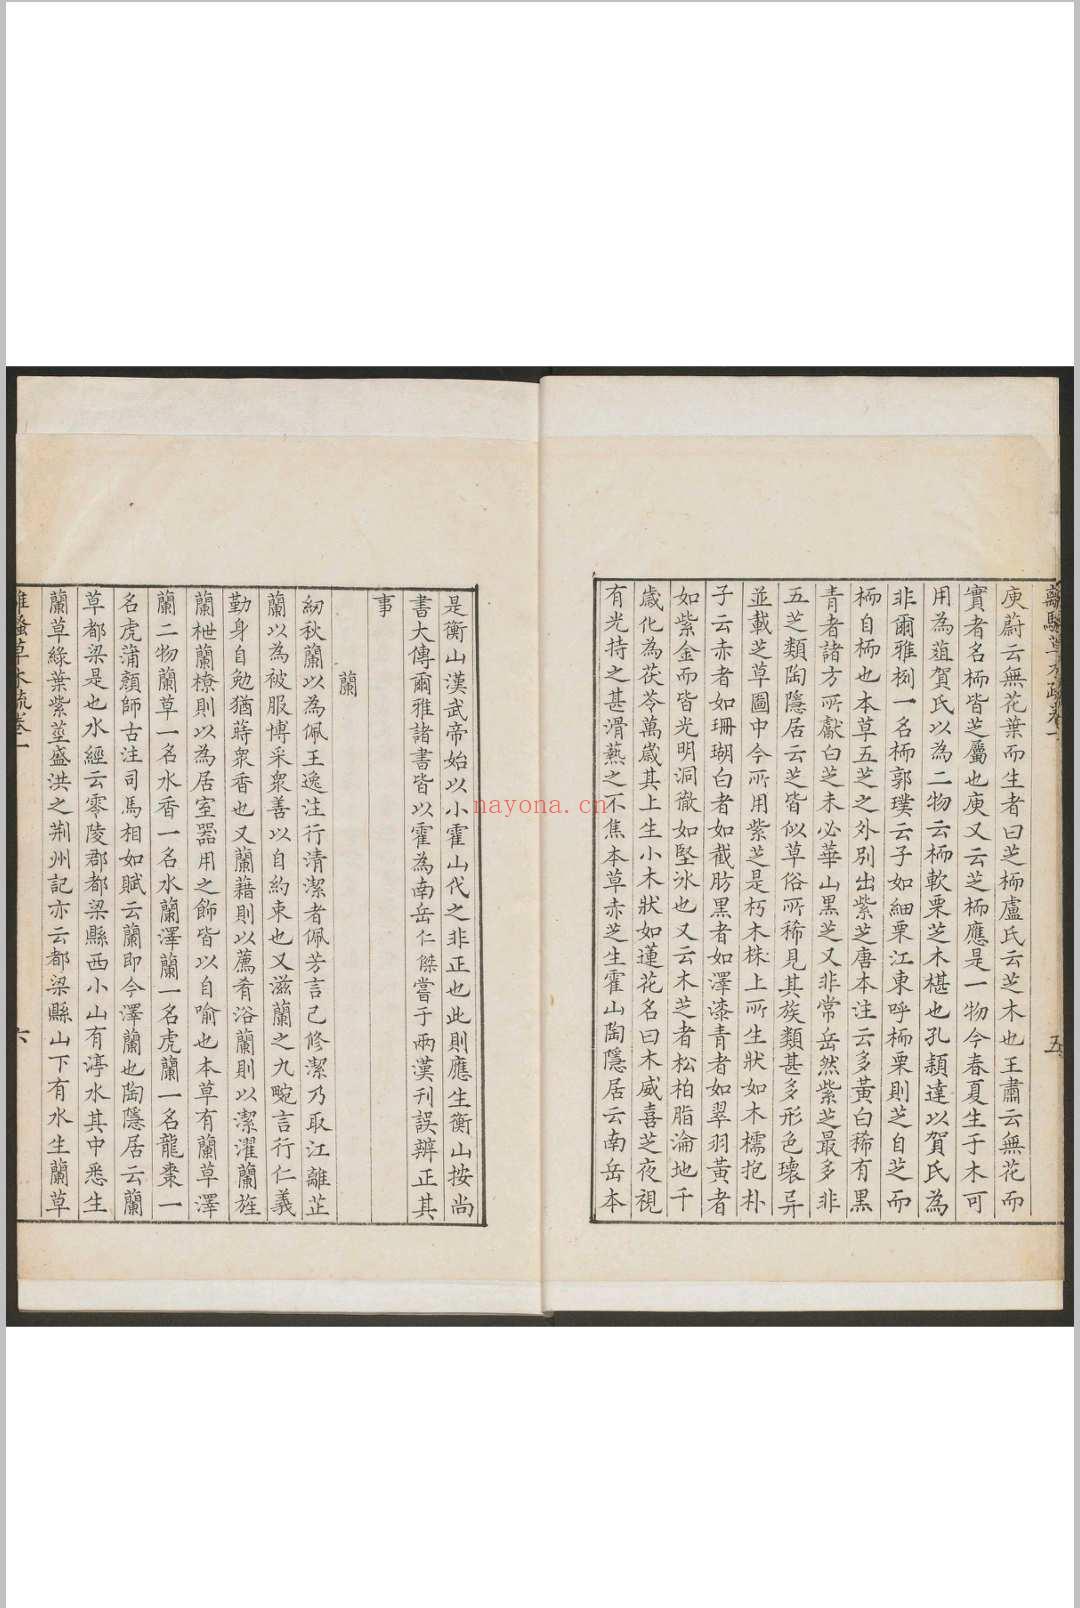 離騷草木疏卷一
五
庾蔚云無花葉而生者曰芝栭盧氏云芝木也王肅云無花而
實者名栭皆芝屬也庾又云芝栭應是一物今春夏生于木可
用為葅賀氏以為二物云栭軟栗芝木椹也孔穎達以賀氏為
非爾雅栵一名栭郭璞云子如細栗江東呼栭栗則芝自芝而
栭自栭也本草五芝之外別出紫芝唐本注云多黃白稀有黑
青者諸方所獻白芝未必華山黑芝又非常岳然紫芝最多非
五芝類陶隱居云芝皆似草俗所稀見其族類甚多形色瓌异
並載芝草圖中今所用紫芝是朽木株上所生狀如木檽抱朴
子云赤者如珊瑚白者如截肪黑者如澤漆青者如翠羽黃者
如紫金而皆光明洞徹如堅冰也又云木芝者松柏脂淪地千
歲化為茯苓萬歲其上生小木狀如蓮花名曰木威喜芝夜視
有光持之甚滑爇之不焦本草赤芝生霍山陶隱居云南岳本
是衡山漢武帝始以小霍山代之非正也此則應生衡山按尚
書大傳爾雅諸書皆以霍為南岳仁傑嘗于兩漢刊誤辨正其
事
蘭
紉秋蘭以為佩王逸注行清潔者佩芳言己修潔乃取江離芷
蘭以為被服博采衆善以自約束也又滋蘭之九畹言行仁義
勤身自勉猶蒔衆香也又蘭藉則以薦肴浴蘭則以潔濯蘭旌
蘭枻蘭橑則以為居室器用之飾皆以自喻也本草有蘭草澤
蘭二物蘭草一名水香一名水蘭澤蘭一名虎蘭一名龍棗一
名虎蒲顏師古注司馬相如賦云蘭即今澤蘭也陶隱居云蘭
草都梁是也水經云零陵郡都梁縣西小山有渟水其中悉生
蘭草綠葉紫莖盛洪之荆州記亦云都梁縣山下有水生蘭草
離騷草木疏卷一
六
nayona.cn